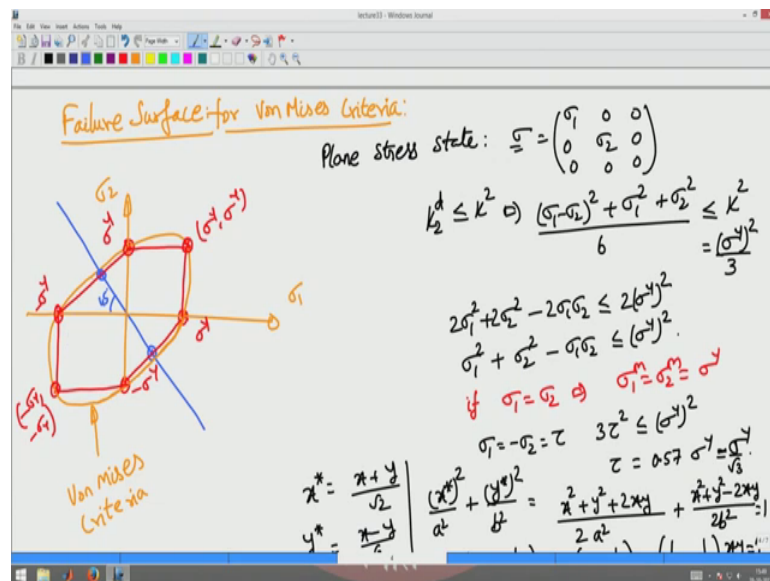 lecture33 - Windows Journal
File Edit View Insert Actions Tools Help
Page Width
Failure Surface for Von Mises Criteria:
Plane stress state: σ = (σ1 0 0
0 σ2 0
0 0 0)
k2^d ≤ k^2 ⇒ ((σ1-σ2)^2 + σ1^2 + σ2^2)/6 ≤ k^2
= (σ^y)^2/3
2σ1^2+2σ2^2-2σ1σ2 ≤ 2(σ^y)^2
σ1^2 + σ2^2 - σ1σ2 ≤ (σ^y)^2.
if σ1 = σ2 ⇒ σ1^m = σ2^m = σ^y
σ1 = -σ2 = τ 3τ^2 ≤ (σ^y)^2
τ = 0.57 σ^y = σ^y/√3.
σ2
σ^y
(σ^y, σ^y)
-σ^y
σ1
σ^y
(-σ^y, -σ^y)
-σ^y
Von Mises
Criteria
x* = (x+y)/√2
(x*)^2/a^2 + (y*)^2/b^2 = (x^2+y^2+2xy)/(2a^2) + (x^2+y^2-2xy)/(2b^2) = 1
y* = x-y